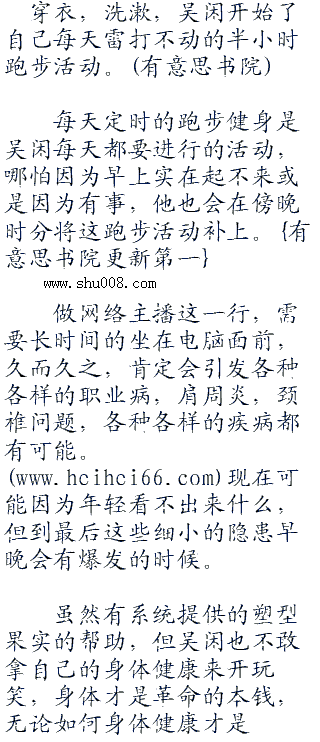 穿衣，洗漱，吴闲开始了
自己每天雷打不动的半小时
跑步活动。(有意思书院)
每天定时的跑步健身是
吴闲每天都要进行的活动，
哪怕因为早上实在起不来或
是因为有事，他也会在傍晚
时分将这跑步活动补上。{有
意思书院更新第一}
www.shu008.com
做网络主播这一行，需
要长时间的坐在电脑面前，
久而久之，肯定会引发各种
各样的职业病，肩周炎，颈
椎问题，各种各样的疾病都
有可能。
(www.hcihci66.com)现在可
能因为年轻看不出来什么，
但到最后这些细小的隐患早
晚会有爆发的时候。
虽然有系统提供的塑型
果实的帮助，但吴闲也不敢
拿自己的身体健康来开玩
笑，身体才是革命的本钱，
无论如何身体健康才是